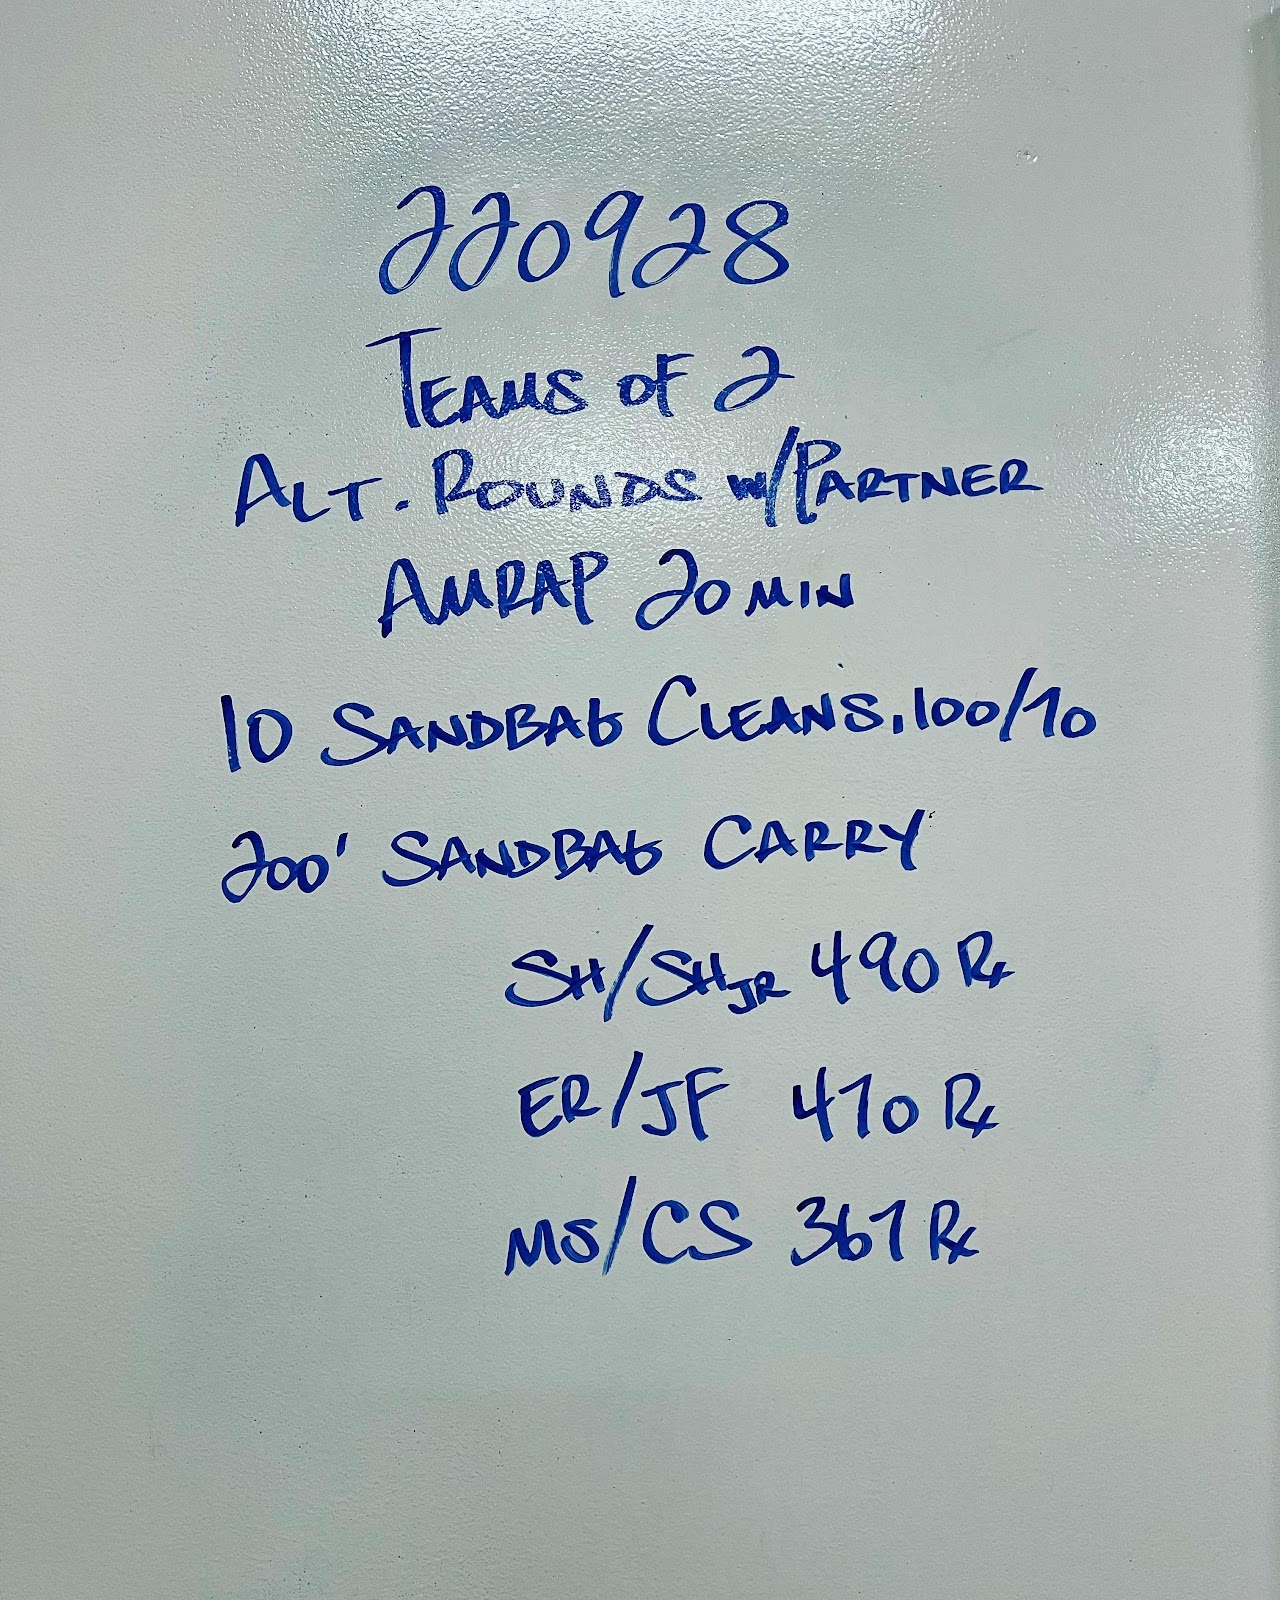 220928
TEAMS OF 2
ALT. ROUNDS W/PARTNER
AMRAP 20 MIN
10 SANDBAG CLEANS, 100/70
200' SANDBAG CARRY
SH/SHJR 490 Rx
ER/JF 470 Rx
MS/CS 367 Rx